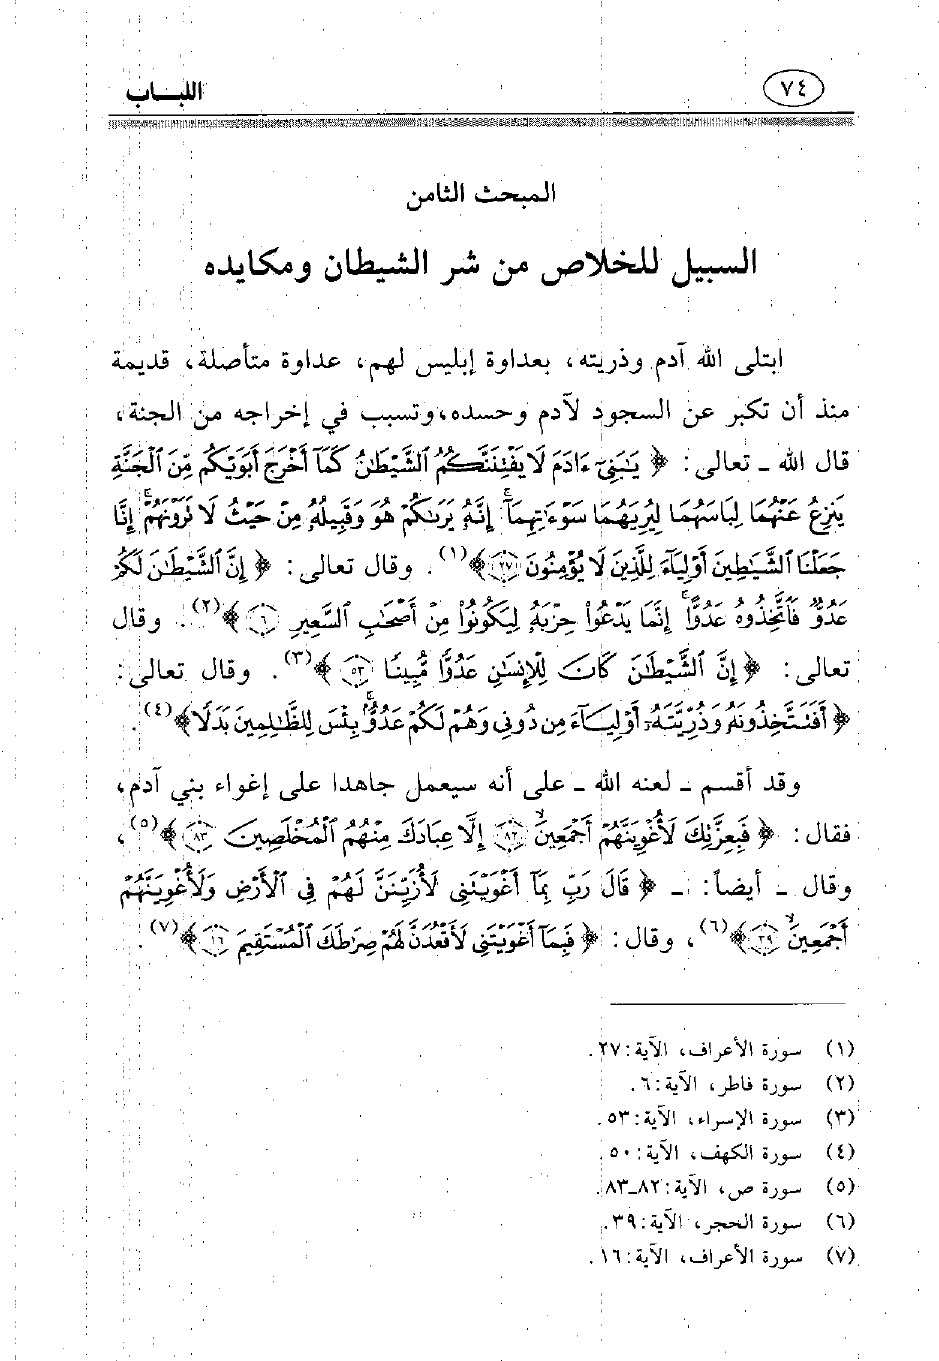 ٧٤
اللباب
المبحث الثامن
السبيل للخلاص من شر الشيطان ومكايده
ابتلى الله آدم وذريته، بعداوة إبليس لهم، عداوة متأصلة، قديمة
منذ أن تكبر عن السجود لآدم وحسده، وتسبب في إخراجه من الجنة،
قال الله ـ تعالى: ﴿ يَـٰبَنِىٓ ءَادَمَ لَا يَفْتِنَنَّكُمُ ٱلشَّيْطَـٰنُ كَمَآ أَخْرَجَ أَبَوَيْكُم مِّنَ ٱلْجَنَّةِ
يَنزِعُ عَنْهُمَا لِبَاسَهُمَا لِيُرِيَهُمَا سَوْءَٰتِهِمَآ ۗ إِنَّهُۥ يَرَىٰكُمْ هُوَ وَقَبِيلُهُۥ مِنْ حَيْثُ لَا تَرَوْنَهُمْ ۗ إِنَّا
جَعَلْنَا ٱلشَّيَـٰطِينَ أَوْلِيَآءَ لِلَّذِينَ لَا يُؤْمِنُونَ ٢٧﴾(١). وقال تعالى: ﴿ إِنَّ ٱلشَّيْطَـٰنَ لَكُمْ
عَدُوٌّ فَٱتَّخِذُوهُ عَدُوًّا ۚ إِنَّمَا يَدْعُوا۟ حِزْبَهُۥ لِيَكُونُوا۟ مِنْ أَصْحَـٰبِ ٱلسَّعِيرِ ٦﴾(٢). وقال
تعالى: ﴿ إِنَّ ٱلشَّيْطَـٰنَ كَانَ لِلْإِنسَـٰنِ عَدُوًّا مُّبِينًا ٥٣﴾(٣). وقال تعالى:
﴿ أَفَتَتَّخِذُونَهُۥ وَذُرِّيَّتَهُۥٓ أَوْلِيَآءَ مِن دُونِى وَهُمْ لَكُمْ عَدُوٌّۢ ۚ بِئْسَ لِلظَّـٰلِمِينَ بَدَلًا﴾(٤).
وقد أقسم ـ لعنه الله ـ على أنه سيعمل جاهدا على إغواء بني آدم،
فقال: ﴿ فَبِعِزَّتِكَ لَأُغْوِيَنَّهُمْ أَجْمَعِينَ ٨٢ إِلَّا عِبَادَكَ مِنْهُمُ ٱلْمُخْلَصِينَ ٨٣﴾(٥)،
وقال ـ أيضاً: ـ ﴿ قَالَ رَبِّ بِمَآ أَغْوَيْتَنِى لَأُزَيِّنَنَّ لَهُمْ فِى ٱلْأَرْضِ وَلَأُغْوِيَنَّهُمْ
أَجْمَعِينَ ٣٩﴾(٦)، وقال: ﴿ فَبِمَآ أَغْوَيْتَنِى لَأَقْعُدَنَّ لَهُمْ صِرَٰطَكَ ٱلْمُسْتَقِيمَ ١٦﴾(٧).
(١) سورة الأعراف، الآية: ٢٧.
(٢) سورة فاطر، الآية: ٦.
(٣) سورة الإسراء، الآية: ٥٣.
(٤) سورة الكهف، الآية: ٥٠.
(٥) سورة ص، الآية: ٨٢ـ٨٣.
(٦) سورة الحجر، الآية: ٣٩.
(٧) سورة الأعراف، الآية: ١٦.